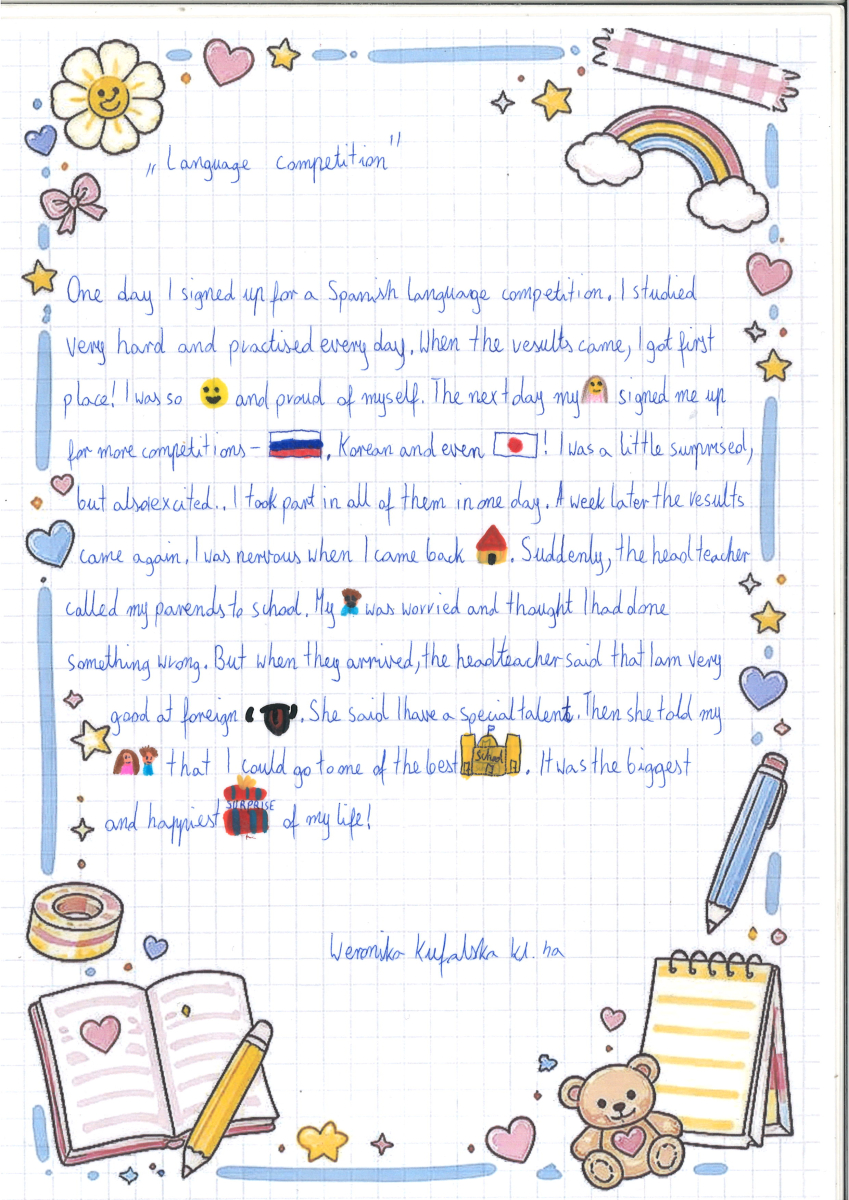 „Language competition"
One day I signed up for a Spanish language competition. I studied
very hard and practised every day. When the results came, I got first
place! I was so and proud of myself. The next day my signed me up
for more competitions - , Korean and even ! I was a little surprised,
but also excited.. I took part in all of them in one day. A week later the results
came again. I was nervous when I came back . Suddenly, the headteacher
called my parends to school. My was worried and thought I had done
something wrong. But when they arrived, the headteacher said that I am very
good at foreign . She said I have a special talent. Then she told my
that I could go to one of the best School . It was the biggest
and happiest SURPRISE of my life!
Weronika Kufalska kl.